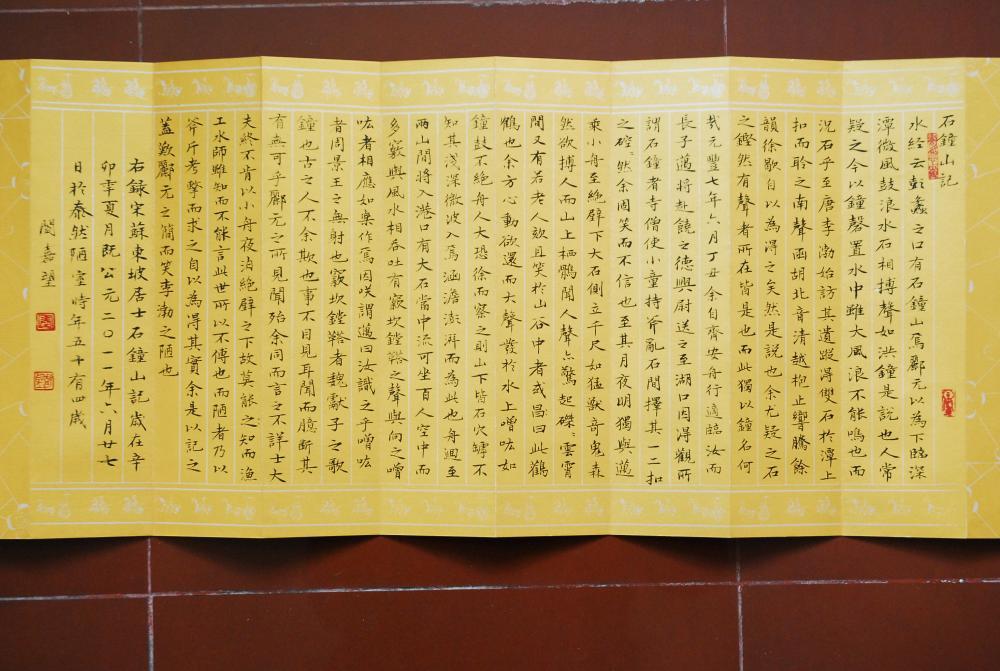 石鐘山記
水经云彭蠡之口有石鐘山焉酈元以為下臨深
潭微風鼓浪水石相搏聲如洪鐘是說也人常
疑之今以鐘磬置水中雖大風浪不能鳴也而
況石乎至唐李渤始訪其遺蹤得雙石於潭上
扣而聆之南聲函胡北音清越枹止響騰餘
韻徐歇自以為得之矣然是說也余尤疑之石
之鏗然有聲者所在皆是也而此獨以鐘名何
哉元豐七年六月丁丑余自齊安舟行適臨汝而
長子邁將赴饒之德興尉送之至湖口因得觀所
謂石鐘者寺僧使小童持斧亂石間擇其一二扣
之硿硿然余固笑而不信也至其月夜明獨與邁
乘小舟至絕壁下大石側立千尺如猛獸奇鬼森
然欲搏人而山上栖鶻聞人聲亦驚起磔磔雲霄
間又有若老人欬且笑於山谷中者或曰此鸛
鶴也余方心動欲還而大聲發於水上噌吰如
鐘鼓不絕舟人大恐徐而察之則山下皆石穴罅不
知其淺深微波入焉涵澹澎湃而為此也舟迴至
兩山間將入港口有大石當中流可坐百人空中而
多竅與風水相吞吐有窾坎鏜鞳之聲與向之噌
吰者相應如樂作焉因笑謂邁曰汝識之乎噌吰
者周景王之無射也窾坎鏜鞳者魏獻子之歌
鐘也古之人不余欺也事不目見耳聞而臆斷其
有無可乎酈元之所見聞殆余同而言之不詳士大
夫終不肯以小舟夜泊絕壁之下故莫能之知而漁
工水師雖知而不能言此世所以不傳也而陋者乃以
斧斤考擊而求之自以為得其實余是以記之
蓋歎酈元之簡而笑李渤之陋也
右録宋蘇東坡居士石鐘山記歲在辛
卯季夏月既公元二〇一一年六月廿七
日於泰然陋室時年五十有四歲
閔嘉望